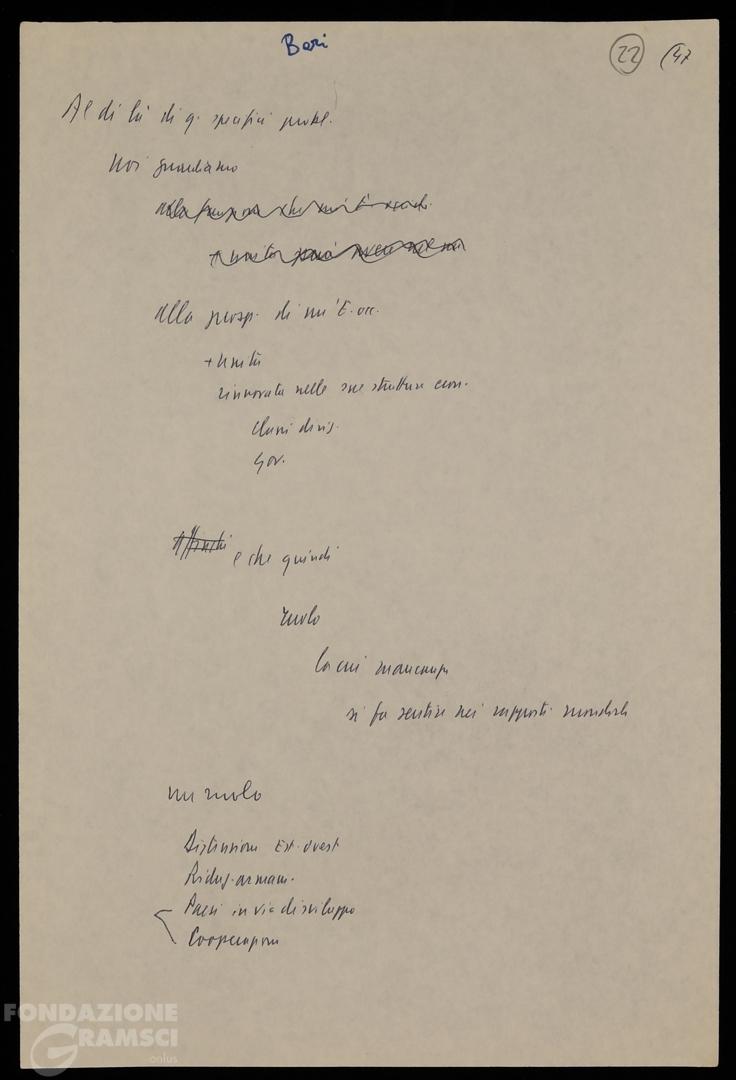 Bari
22 47
Al di là di q. specifici probl.
noi guardiamo
alla prosp. di un'E. occ.
+ unita
rinnovata nelle sue strutture econ.
classi dirig.
gov.
Affinché e che quindi
ruolo
la cui mancanza
si fa sentire nei rapporti mondiali
un ruolo
Distensione Est-Ovest
Riduz. armam.
Paesi in via di sviluppo
Cooperazione
FONDAZIONE
GRAMSCI
onlus